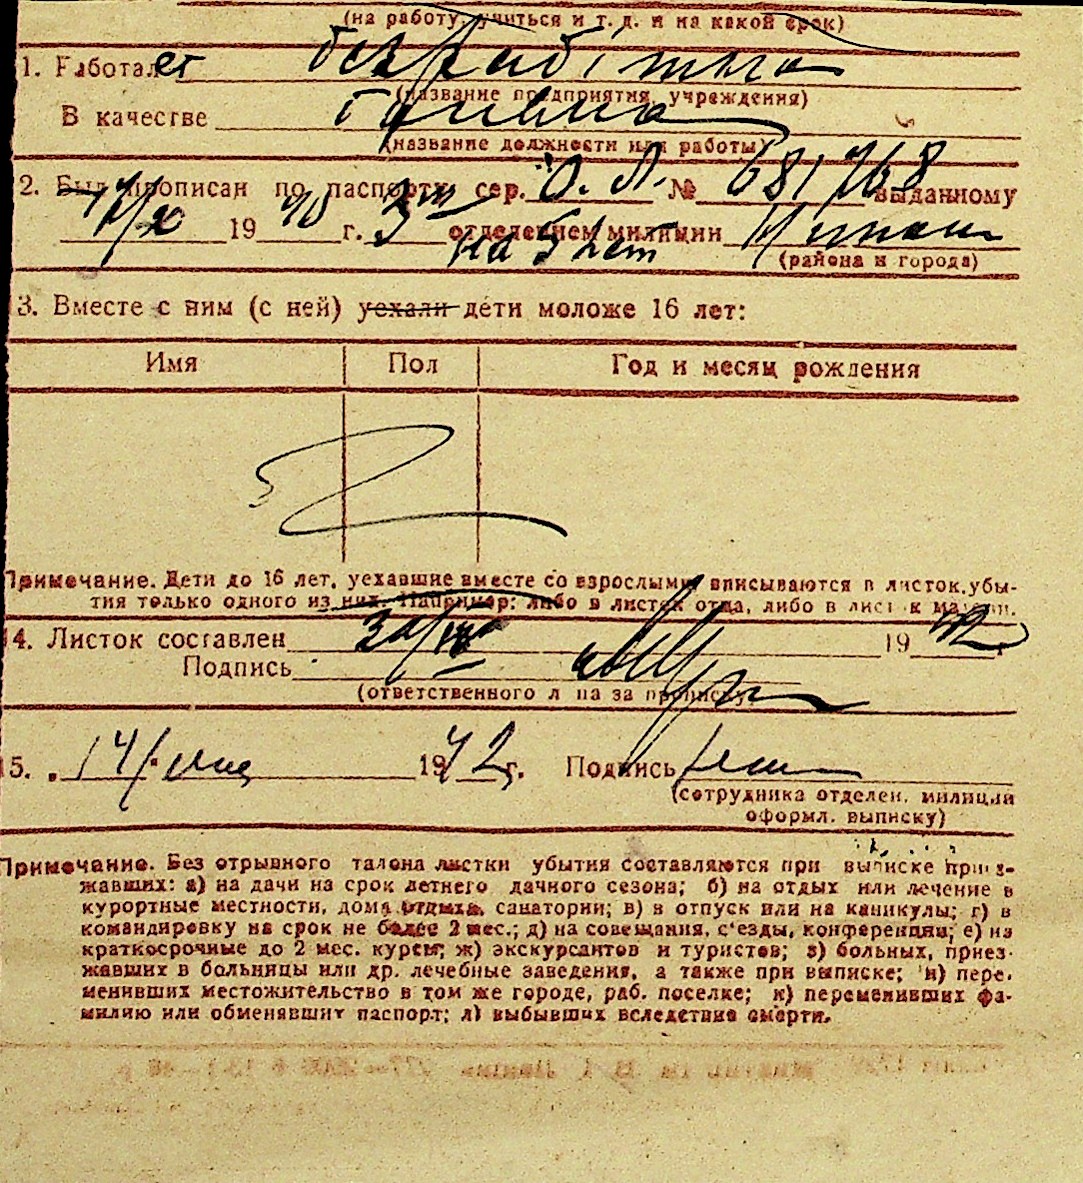 (на работу, учиться и т. д. и на какой срок)
1. Работает
(название предприятия, учреждения)
В качестве
(название должности или работы)
2. Был прописан по паспорту сер. О. Л. № 681768 выданному
19 40 г. 3м отделением милиции
на 5 лет
(района и города)
3. Вместе с ним (с ней) уехали дети моложе 16 лет:
Имя Пол Год и месяц рождения
Примечание. Дети до 16 лет, уехавшие вместе со взрослыми, вписываются в листок убы-
тия только одного из них. Например: либо в листок отца, либо в листок матери.
14. Листок составлен 19 42 г.
Подпись
(ответственного лица за прописку)
15. 14/ мая 1942 г. Подпись
(сотрудника отделен. милиции
оформл. выписку)
Примечание. Без отрывного талона листки убытия составляются при выписке приез-
жавших: а) на дачи на срок летнего дачного сезона; б) на отдых или лечение в
курортные местности, дома отдыха, санатории; в) в отпуск или на каникулы; г) в
командировку на срок не более 2 мес.; д) на совещания, с'езды, конференции; е) на
краткосрочные до 2 мес. курсы; ж) экскурсантов и туристов; з) больных, приез-
жавших в больницы или др. лечебные заведения, а также при выписке; и) пере-
менивших местожительство в том же городе, раб. поселке; к) переменивших фа-
милию или обменявшит паспорт; л) выбывших вследствие смерти.